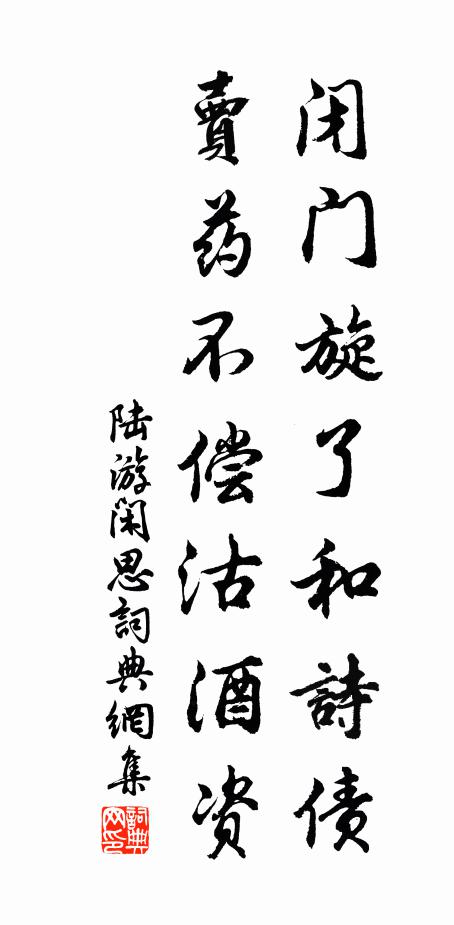 闭门旋了和詩债
賣药不偿沽酒资
陆游闲思詞典網集
詞典网印